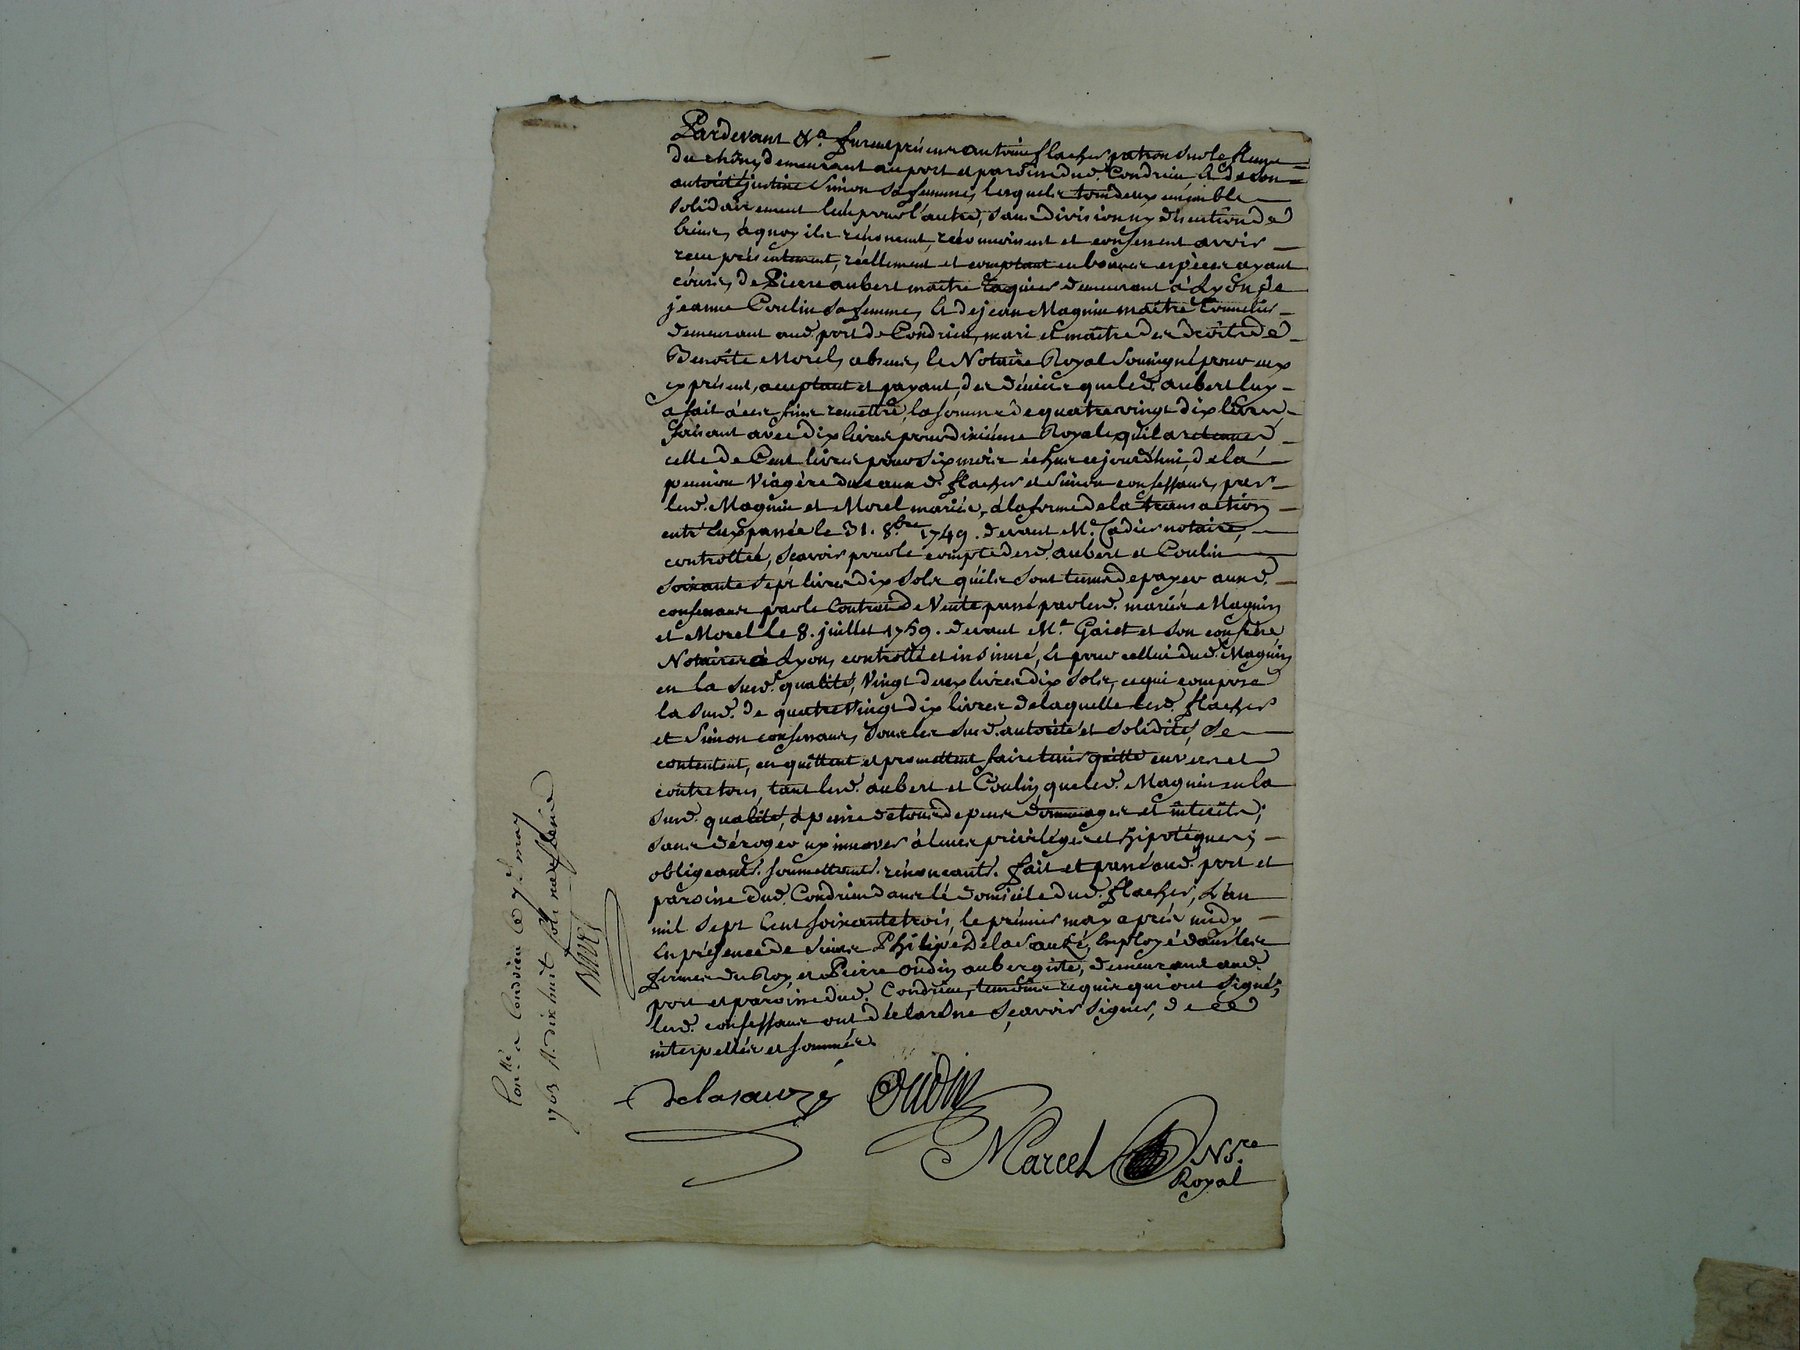 Pardevant &a. furent présens antoine flacher patron sur le fleuve
du rhône, demeurant au port et paroisse dud. Condrieu & de son
autorité justine Simon sa femme, lesquels tous deux ensemble
solidairement l'un pour l'autre, sans division ny discution de
biens, à quoy ils rénoncent, réconnoissent et confessent avoir
reçu présentement, réellement et comptant en bonnes espèces ayant
cours, de Pierre aubert maître demeurant à Lyon, de
jeanne Coulin sa femme, & de jean Magnin maître tonnelier
demeurant aud. port de Condrieu, mari et maître des droits de
Benoîte Morel, absens, le Notaire Royal soussigné pour eux
présent, acceptant et payant, des déniers que led. aubert luy
a fait à ces fins remettre, la somme de quatre vingt dix livres,
faisant avec dix livres pour dixiéme Royale qu'il a retenue
celle de Cent livres pour six mois échus cejourd'hui, de la
pension Viagère due auxd. flacher et Simon confessans, par
lesd. Magnin et Morel mariés, à la forme de la transaction
entr'eux passée le 31. 8bre 1749. devant Me. Cadier notaire,
controllée, sçavoir pour le compte desd. aubert et Coulin
soixante sept livres dix sols qu'ils sont tenus de payer auxd.
confessans par le Contrat de Vente passé par lesd. mariés Magnin
et Morel le 8. juillet 1759. devant Me. Gaiet et son confrère,
Notaires à Lyon, controllé et insinué, & pour cellui dud. Magnin
en la susd. qualité, Vingt deux livres dix sols, ce qui compose
la susd. de quatre Vingt dix livres de laquelle lesd. flacher
et Simon confessans, sous les susd. autorité et solidité, se
contentent, en quittent et promettent faire tenir quitte envers et
contre tous, tant lesd. aubert et Coulin, que led. Magnin en la
susd. qualité, à peine de tous depens dommages et intérêts,
sans déroger ny innover à leurs priviléges et hipotéques;
obligeants. soumettants. rénonçants. fait et passé aud. port et
paroisse dud. Condrieu dans lé domicile dud. flacher, L'an
mil sept Cent soixante trois, le prémier may après midy
En présence de sieur Philipe Delasauzé, Employé dans les
fermes du Roy, et Pierre Oudin aubergiste, demeurant aud.
port et paroisse dud. Condrieu, temoins requis qui ont signé,
lesd. confessans ont déclaré ne sçavoir signer, de ce
interpellés et sommés.
delasauzé Oudin
Marcel Nore
Royal
Conllé a Condrieu ce 7e may
1763 R. dix huit sols neuf deniers